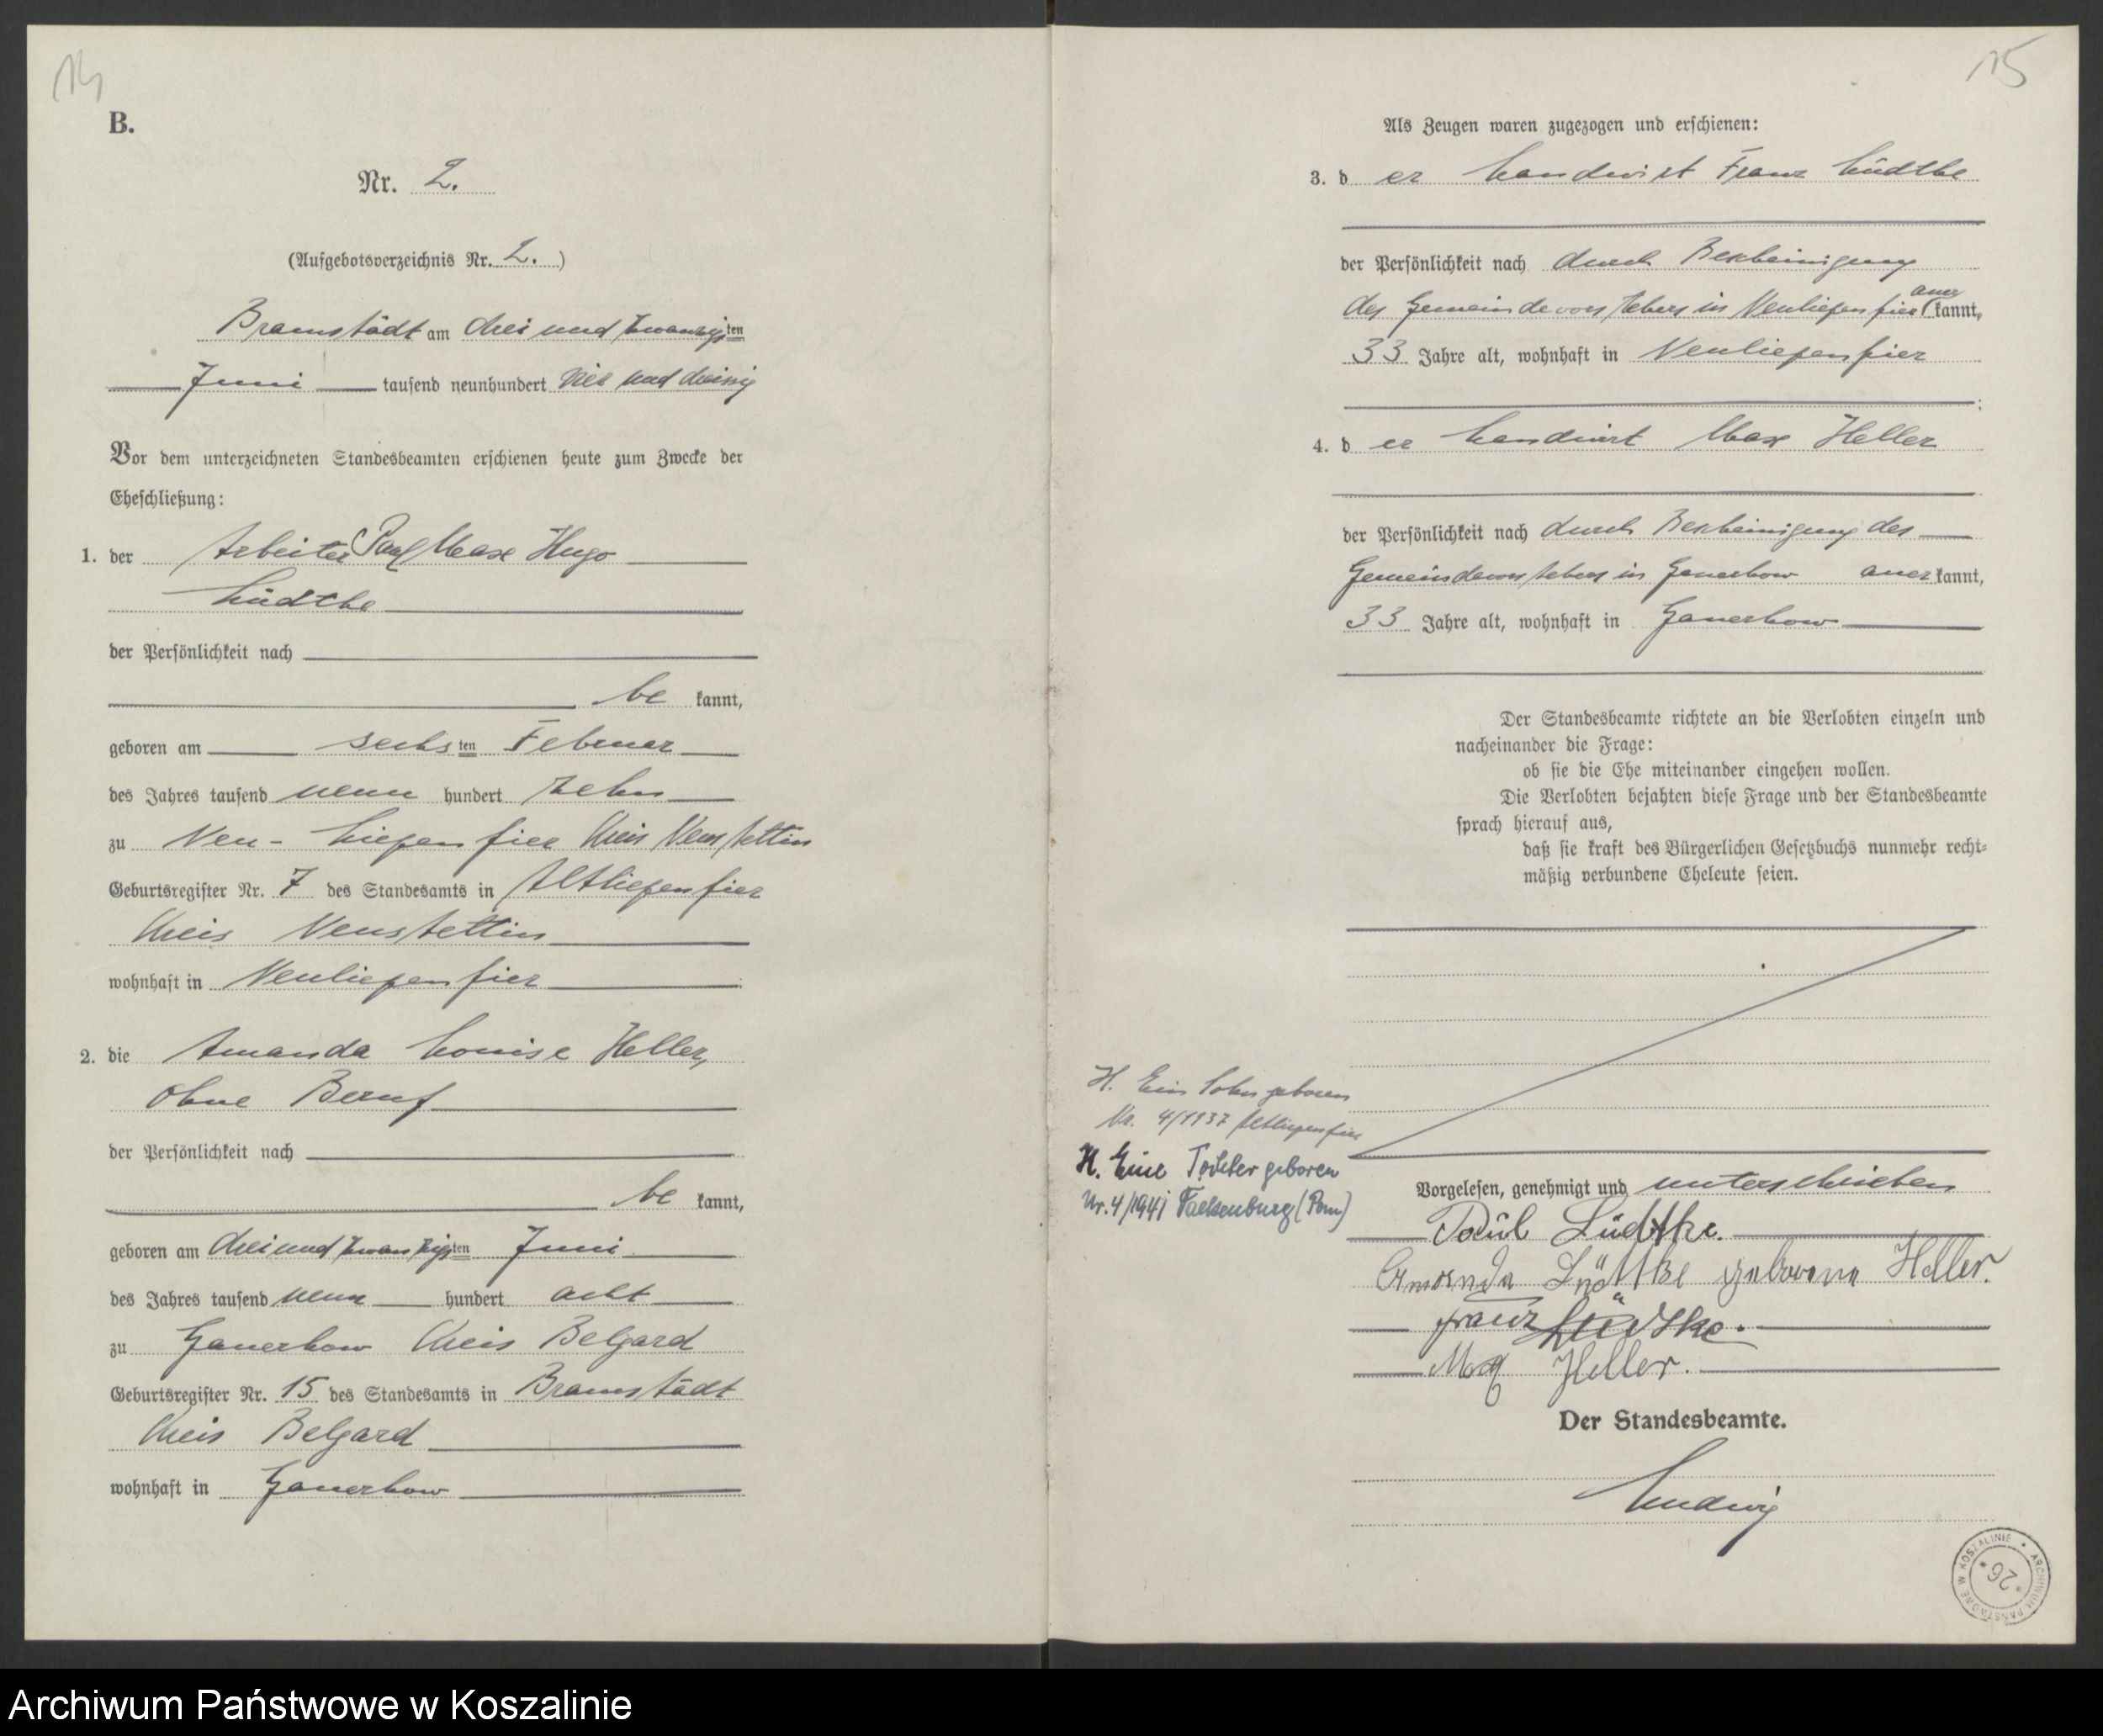 14
B.
Nr. 2.
(Aufgebotsverzeichnis Nr. 2.)
Bramstädt am drei und zwanzigsten
Juni tausend neunhundert vier und dreissig
Vor dem unterzeichneten Standesbeamten erschienen heute zum Zwecke der
Eheschließung:
1. der Arbeiter Paul Max Hugo
Lüdtke
der Persönlichkeit nach
be kannt,
geboren am sechsten Februar
des Jahres tausend neun hundert zehn
zu Neu-Liepenfier Kreis Neustettin
Geburtsregister Nr. 7 des Standesamts in Altliepenfier
Kreis Neustettin
wohnhaft in Neuliepenfier
2. die Amanda Louise Heller,
ohne Beruf
der Persönlichkeit nach
be kannt,
geboren am dreiundzwanzigsten Juni
des Jahres tausend neun hundert acht
zu Ganerkow Kreis Belgard
Geburtsregister Nr. 15 des Standesamts in Bramstädt
Kreis Belgard
wohnhaft in Ganerkow
15
Als Zeugen waren zugezogen und erschienen:
3. d er Landwirt Franz Lüdtke
der Persönlichkeit nach durch Bescheinigung
des Gemeindevorstehers in Neuliepenfier aner kannt,
33 Jahre alt, wohnhaft in Neuliepenfier
;
4. d er Landwirt Max Heller
der Persönlichkeit nach durch Bescheinigung des
Gemeindevorstehers in Ganerkow aner kannt,
33 Jahre alt, wohnhaft in Ganerkow
Der Standesbeamte richtete an die Verlobten einzeln und
nacheinander die Frage:
ob sie die Ehe miteinander eingehen wollen.
Die Verlobten bejahten diese Frage und der Standesbeamte
sprach hierauf aus,
daß sie kraft des Bürgerlichen Gesetzbuchs nunmehr recht-
mäßig verbundene Eheleute seien.
H. Ein Sohn geboren
Nr. 4/1937 Altliepenfier
H. Eine Tochter geboren
Nr. 4/1941 Falkenburg (Pom)
Vorgelesen, genehmigt und unterschrieben
Paul Lüdtke.
Amanda Lüdtke geborene Heller.
Franz Lüdtke.
Max Heller.
Der Standesbeamte.
Ludwig
ARCHIWUM PAŃSTWOWE W KOSZALINIE
* 26 *
Archiwum Państwowe w Koszalinie